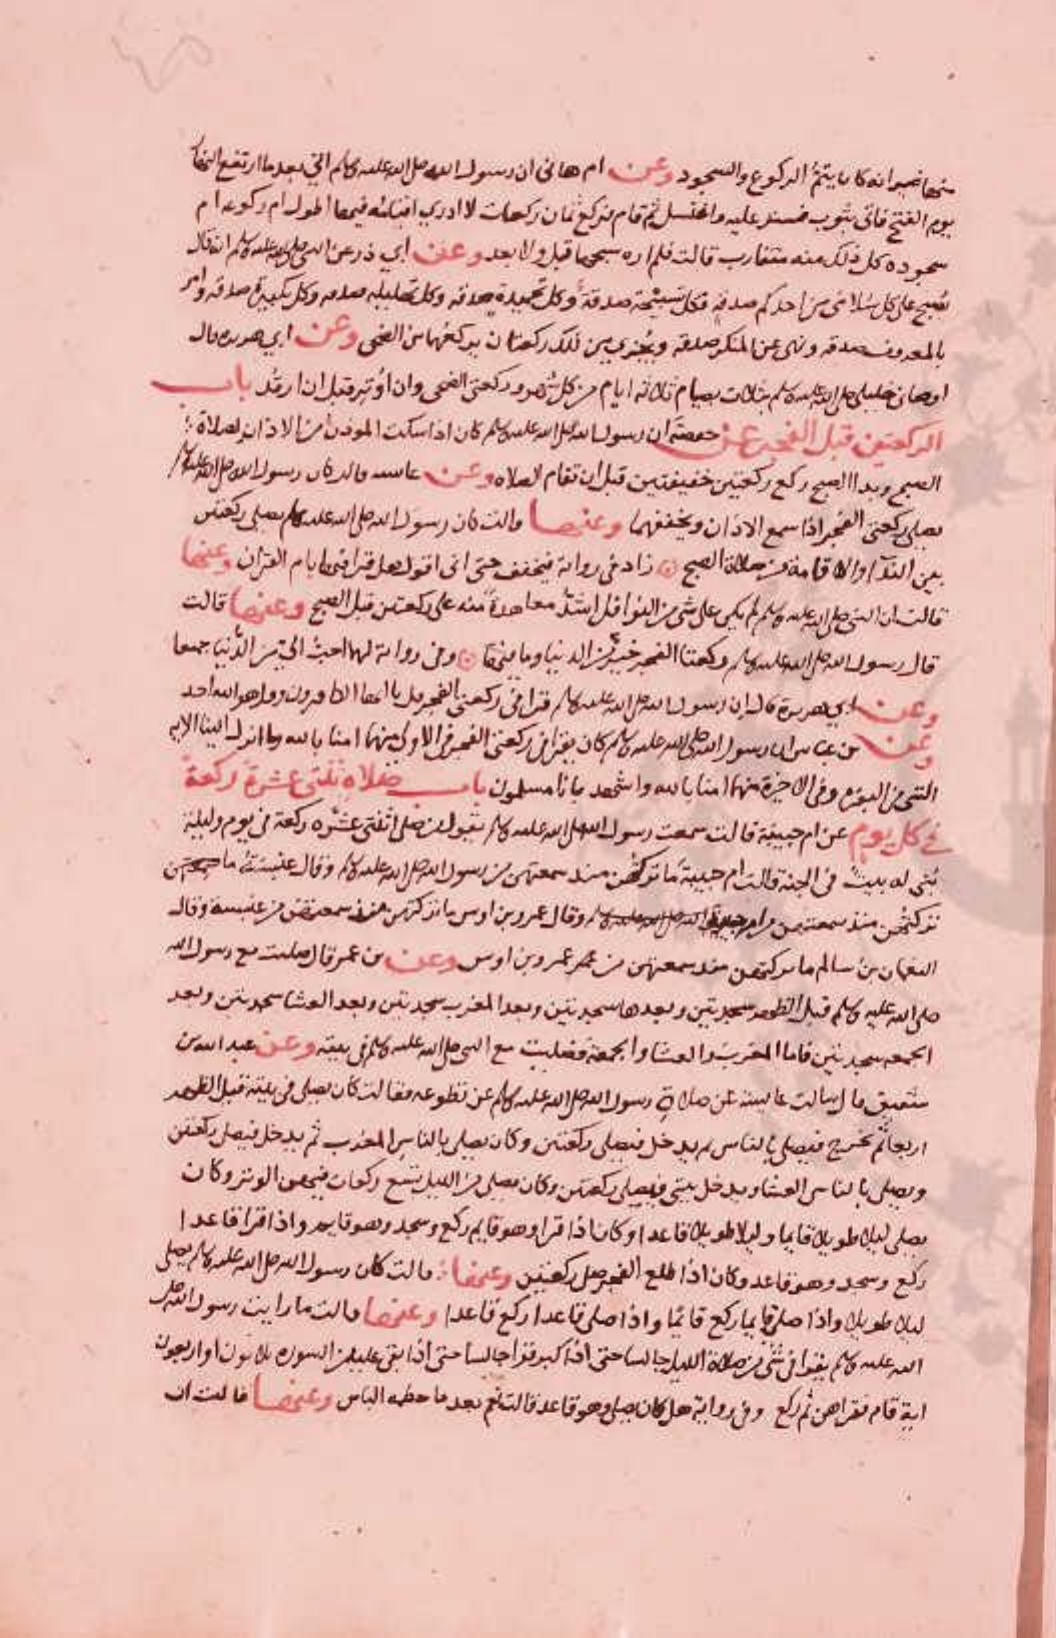 منها غير انه كان يتم الركوع والسجود وعن ام هاني ان رسول الله صلى الله عليه وسلم اتى بعد ما ارتفع النهار
يوم الفتح فاتي بثوب فستر عليه واغتسل ثم قام فركع ثمان ركعات لا ادري اقيامه فيها اطول ام ركوعه ام
سجوده كل ذلك منه متقارب قالت فلم اره سبحها قبل ولا بعد وعن ابي ذر عن النبي صلى الله عليه وسلم انه قال
يصبح على كل سلامى من احدكم صدقة فكل تسبيحة صدقة وكل تحميدة صدقه وكل تهليله صدقه وكل تكبيرة صدقه وامر
بالمعروف صدقه ونهى عن المنكر صدقه ويجزي من ذلك ركعتان يركعهما من الضحى وعن ابي هريره قال
اوصاني خليلي صلى الله عليه وسلم بثلاث بصيام ثلاثه ايام من كل شهر وركعتى الضحى وان اوتر قبل ان ارقد باب
الركعتين قبل الفجر عن حفصة ان رسول الله صلى الله عليه وسلم كان اذا سكت الموذن من الاذان لصلاة
الصبح وبدا الصبح ركع ركعتين خفيفتين قبل ان تقام الصلاه وعن عائشه قالت كان رسول الله صلى الله عليه وسلم
يصلي ركعتى الفجر اذا سمع الاذان ويخففهما وعنها قالت كان رسول الله صلى الله عليه وسلم يصلي ركعتين
بين الندآ والاقامة من صلاة الصبح زاد في رواية فيخفف حتى اني اقول هل قرا فيهما بام القران وعنها
قالت ان النبي صلى الله عليه وسلم لم يكن على شي من النوافل اشد معاهدة منه على ركعتين قبل الصبح وعنها قالت
قال رسول الله صلى الله عليه وسلم ركعتا الفجر خير من الدنيا وما فيها وفي رواية لهما احب الي من الدنيا جميعا
وعن ابي هريرة قال ان رسول الله صلى الله عليه وسلم قرا في ركعتي الفجر قل يا ايها الكافرون وقل هو الله احد
وعن بن عباس ان رسول الله صلى الله عليه وسلم كان يقرا في ركعتي الفجر في الاولى منهما امنا بالله وما انزل الينا الايه
التي في البقره وفي الاخرة منهما امنا بالله واشهد بانا مسلمون باب صلاة ثنتى عشرة ركعة
في كل يوم عن ام حبيبة قالت سمعت رسول الله صلى الله عليه وسلم يقول من صلى اثنتى عشره ركعة في يوم وليلة
بني له بيت في الجنة قالت ام حبيبة ما تركتهن منذ سمعتهن من رسول الله صلى الله عليه وسلم وقال عنبسة ما
تركتهن منذ سمعتهن من ام حبيبة وقال عمرو بن اوس ما تركتهن منذ سمعتهن من عنبسه وقال
النعمان بن سالم ما تركتهن منذ سمعتهن من عمرو بن اوس وعن بن عمر قال صليت مع رسول الله
صلى الله عليه وسلم قبل الظهر سجدتين وبعدها سجدتين وبعد المغرب سجدتين وبعد العشا سجدتين وبعد
الجمعه سجدتين فاما المغرب والعشا والجمعة فصليت مع النبي صلى الله عليه وسلم في بيته وعن عبد الله بن
شقيق قال سالت عايشه عن صلاة رسول الله صلى الله عليه وسلم عن تطوعه فقالت كان يصلي في بيته قبل الظهر
اربعا ثم يخرج فيصلي بالناس ثم يدخل فيصلى ركعتين وكان يصلي بالناس المغرب ثم يدخل فيصلي ركعتين
ويصلي بالناس العشا ويدخل بيتي فيصلي ركعتين وكان يصلي من الليل تسع ركعات فيهن الوتر وكان
يصلي ليلا طويلا قايما وليلا طويلا قاعدا وكان اذا قرا وهو قايم ركع وسجد وهو قايم واذا قرا قاعدا
ركع وسجد وهو قاعد وكان اذا طلع الفجر صلى ركعتين وعنها قالت كان رسول الله صلى الله عليه وسلم يصلي
ليلا طويلا واذا صلى قايما ركع قائما واذا صلى قاعدا ركع قاعدا وعنها قالت ما رايت رسول الله صلى
الله عليه وسلم يقرا في شي من صلاة الليل جالسا حتى اذا كبر قرا جالسا حتى اذا بقي عليه من السوره ثلاثون او اربعون
اية قام فقراهن ثم ركع وفي رواية هل كان يصلي وهو قاعد قالت نعم بعد ما حطمه الناس وعنها قالت ان